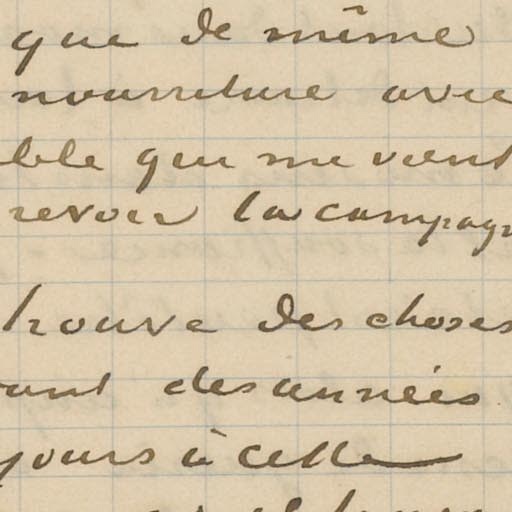 que de même
nourriture avec
ble qui me vient
revoir la campagn
trouve des choses
ant des années
jours à cette